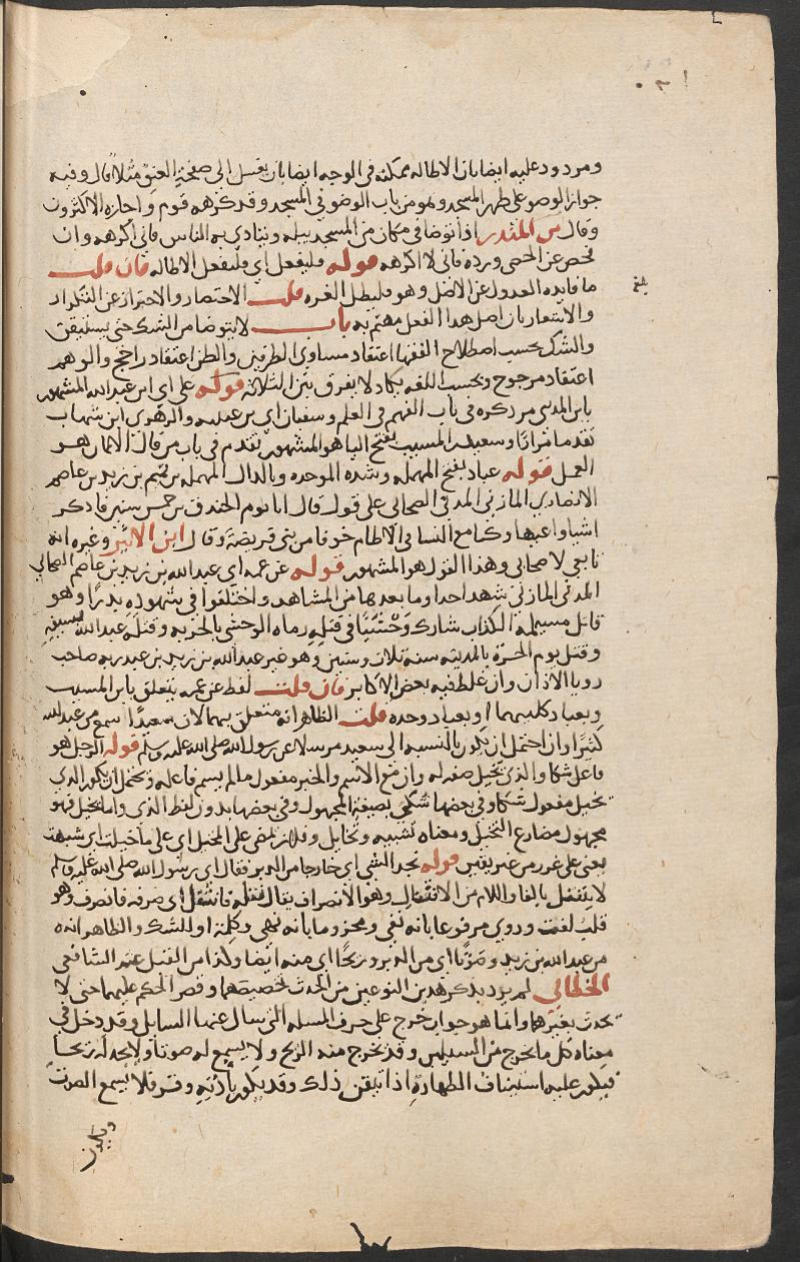 ومردود عليه ايضا بان الاطالة ممكنة في الوجه ايضا بان يغسل الى صفحة العنق مثلا قال وفيه
جواز الوضو على ظهر المسجد وهو من باب الوضو في المسجد وقد كرهه قوم واجازه الاكثرون
وقال بن المنذر اذا توضا في مكان من المسجد يبله ويتاذى به الناس فاني اكرهه وان
فحص عن الحصى ورده فاني لا اكرهه قوله فليفعل اي فليفعل الاطالة فان قلت
ما فايدة العدول عن الاصل وهو فليطل الغرة قلت الاختصار والاحتراز عن التكرار
والاشعار بان اصل هذا الفعل مهتم به باب لا يتوضا من الشك حتى يستيقن
والشك بحسب اصطلاح الفقها اعتقاد مساوي الطرفين والظن اعتقاد راجح والوهم
اعتقاد مرجوح وبحسب اللغة يكاد لا يفرق بين الثلاثة قوله علي اي ابن عبد الله المشهور
بابن المديني مر ذكره في باب الفهم في العلم وسفيان اي بن عيينه والزهري ابن شهاب
تقدما مرارا وسعيد بن المسيب بفتح اليا هو المشهور تقدم في باب من قال الايمان هو
العمل قوله عباد بفتح المهملة وشدة الموحدة وبالدال المهملة بن تميم بن زيد بن عاصم
الانصاري المازني المدني الصحابي على قول قال انا يوم الخندق بن خمس سنين فاذكر
اشيا واعيها وكنا مع النسا في الاطام خوفا من بني قريضة وقال ابن الاثير وغيره انه
تابعي لا صحابي وهذا القول هو المشهور قوله عن عمه اي عبد الله بن زيد بن عاصم الصحابي
المدني المازني شهد احدا وما بعدها من المشاهد واختلفوا في شهوده بدرا وهو
قاتل مسيلمة الكذاب شارك وحشيا في قتله رماه الوحشي بالحربة وقتله عبد الله بسيفه
وقتل يوم الحرة بالمدينة سنة ثلاث وستين وهو غير عبد الله بن زيد بن عبد ربه صاحب
رويا الاذان وان غلط فيه بعض الاكابر فان قلت لفظ عن عمه يتعلق بابن المسيب
وبعباد كليهما او بعباد وحده قلت الظاهر انه متعلق بهما لان سعيدا سمع من عبد الله
كثيرا وان احتمل ان يكون بالنسبة الى سعيد مرسلا عن رسول الله صلى الله عليه وسلم قوله الرجل هو
فاعل شكا والذي تخيل صفة له وان مع الاسم والخبر مفعول ما لم يسم فاعله ويحتمل ان يكون الذي
يخيل مفعول شكا وفي بعضها شكي بصيغة المجهول وفي بعضها بدون لفظ الذي واما يخيل فهو
مجهول مضارع التخيل ومعناه تشبيه وتخايل وفلان يمضي على المخيل اي على ما خيلت اي شبهت
يعني على غرر من غير يقين قوله يجد الشي اي خارجا من الدبر فقال اي رسول الله صلى الله عليه وسلم
لا ينفتل بالفا واللام من الانفتال وهو الانصراف يقال فتله فانفتل اي صرفه فانصرف وهو
قلب لفت وروي مرفوعا بانه نفي ومجزوما بانه نهي وكلمة او للشك والظاهر انه
من عبد الله بن زيد وصوتا اي من الدبر وريحا اي منه ايضا وكذا من القبل عند الشافعي
الخطابي لم يرد بذكر هذين النوعين من الحدث تخصيصهما وقصر الحكم عليهما حتى لا
يحدث بغيرهما وانما هو جواب خرج على حرف المسلة التي سال عنها السايل وقد دخل في
معناه كل ما يخرج من السبيلين وقد يخرج منه الريح ولا يسمع له صوتا ولا يجد له ريحا
فيكون عليه استيناف الطهارة اذا تيقن ذلك وقد يكون باذنه وقر فلا يسمع الصوت
ويكون